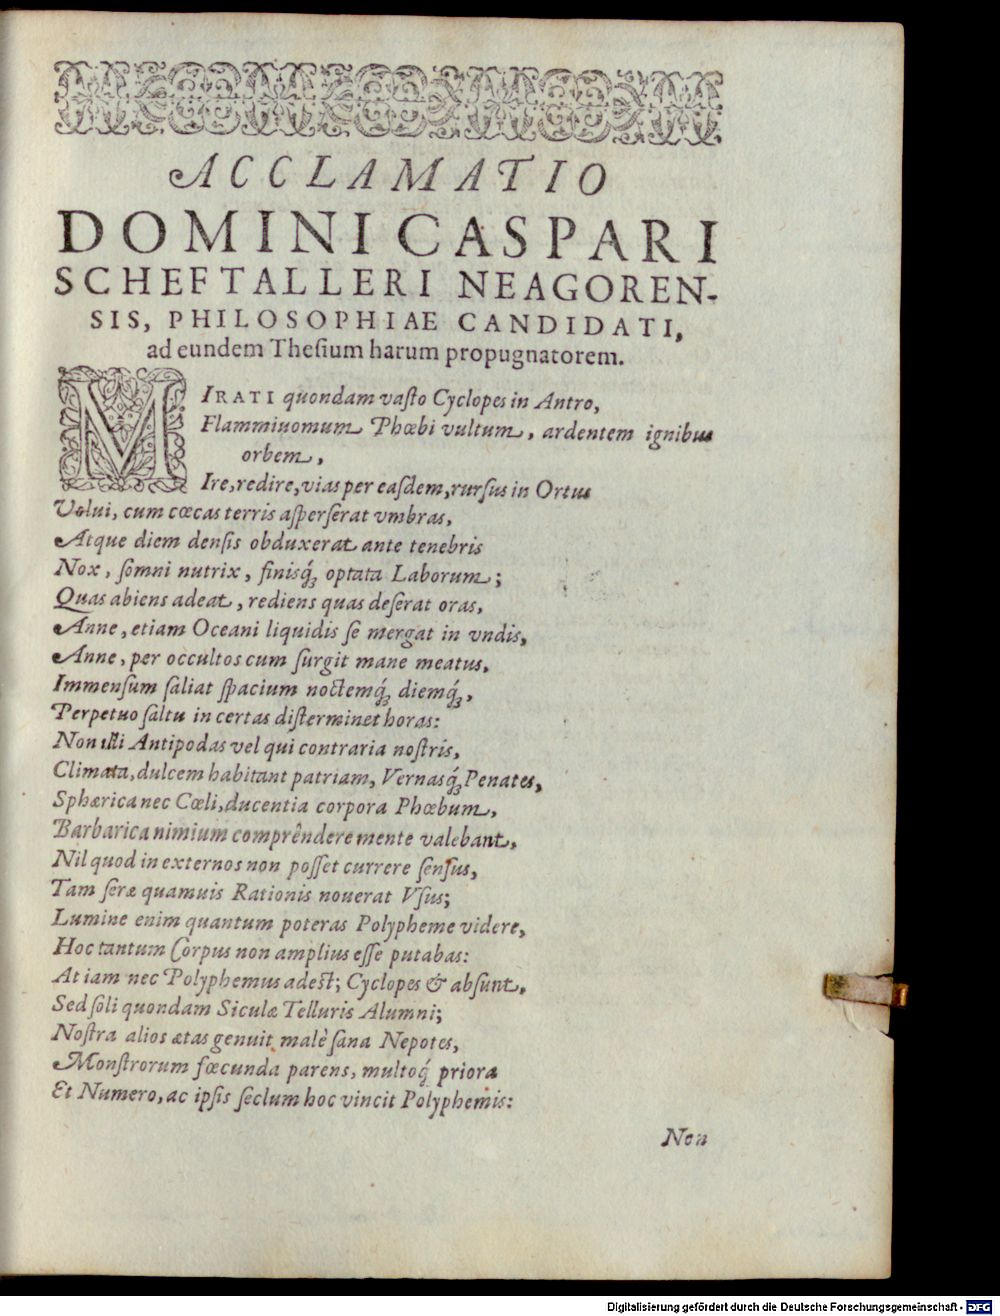 ACCLAMATIO
DOMINI CASPARI
SCHEFTALLERI NEAGOREN-
SIS, PHILOSOPHIAE CANDIDATI,
ad eundem Theſium harum propugnatorem.
MIRATI quondam vaſto Cyclopes in Antro,
Flammiuomum Phœbi vultum, ardentem ignibus
orbem,
Ire, redire, vias per eaſdem, rurſus in Ortus
Volui, cum cœcas terris aſperſerat vmbras,
Atque diem denſis obduxerat ante tenebris
Nox, ſomni nutrix, finisq́ꝫ optata Laborum;
Quas abiens adeat, rediens quas deſerat oras,
Anne, etiam Oceani liquidis ſe mergat in vndis,
Anne, per occultos cum ſurgit mane meatus,
Immenſum ſaliat ſpacium noctemq́ꝫ diemq́ꝫ,
Perpetuo ſaltu in certas diſterminet horas:
Non illi Antipodas vel qui contraria noſtris,
Climata, dulcem habitant patriam, Vernasq́ꝫ Penates,
Sphærica nec Cœli, ducentia corpora Phœbum,
Barbarica nimium comprêndere mente valebant,
Nil quod in externos non poſſet currere ſenſus,
Tam ſeræ quamuis Rationis nouerat Vſus;
Lumine enim quantum poteras Polypheme videre,
Hoc tantum Corpus non amplius eſſe putabas:
At iam nec Polyphemus adeſt; Cyclopes & abſunt,
Sed ſoli quondam Siculæ Telluris Alumni;
Noſtra alios ætas genuit malè ſana Nepotes,
Monſtrorum fœcunda parens, multoq́ priora
Et Numero, ac ipſis ſeclum hoc vincit Polyphemis:
Non
Digitalisierung gefördert durch die Deutsche Forschungsgemeinschaft - DFG